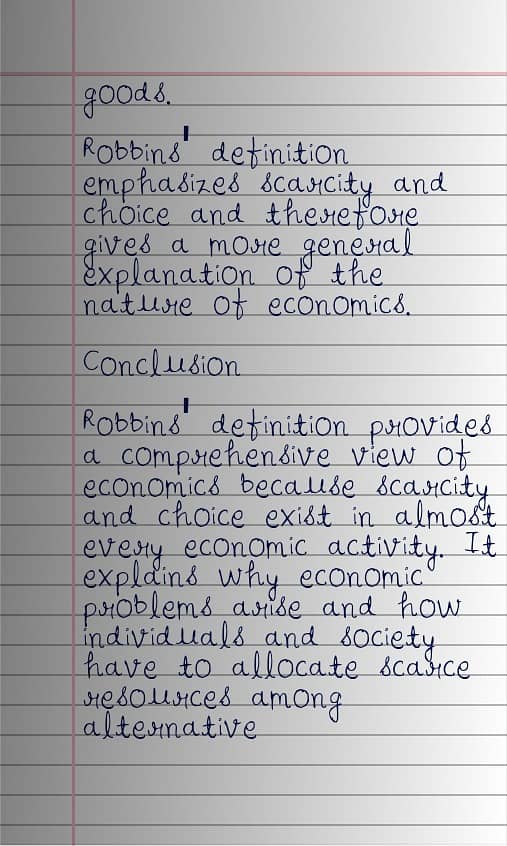 goods.
Robbins' definition
emphasizes scarcity and
choice and therefore
gives a more general
explanation of the
nature of economics.
Conclusion
Robbins' definition provides
a comprehensive view of
economics because scarcity
and choice exist in almost
every economic activity. It
explains why economic
problems arise and how
individuals and society
have to allocate scarce
resources among
alternative